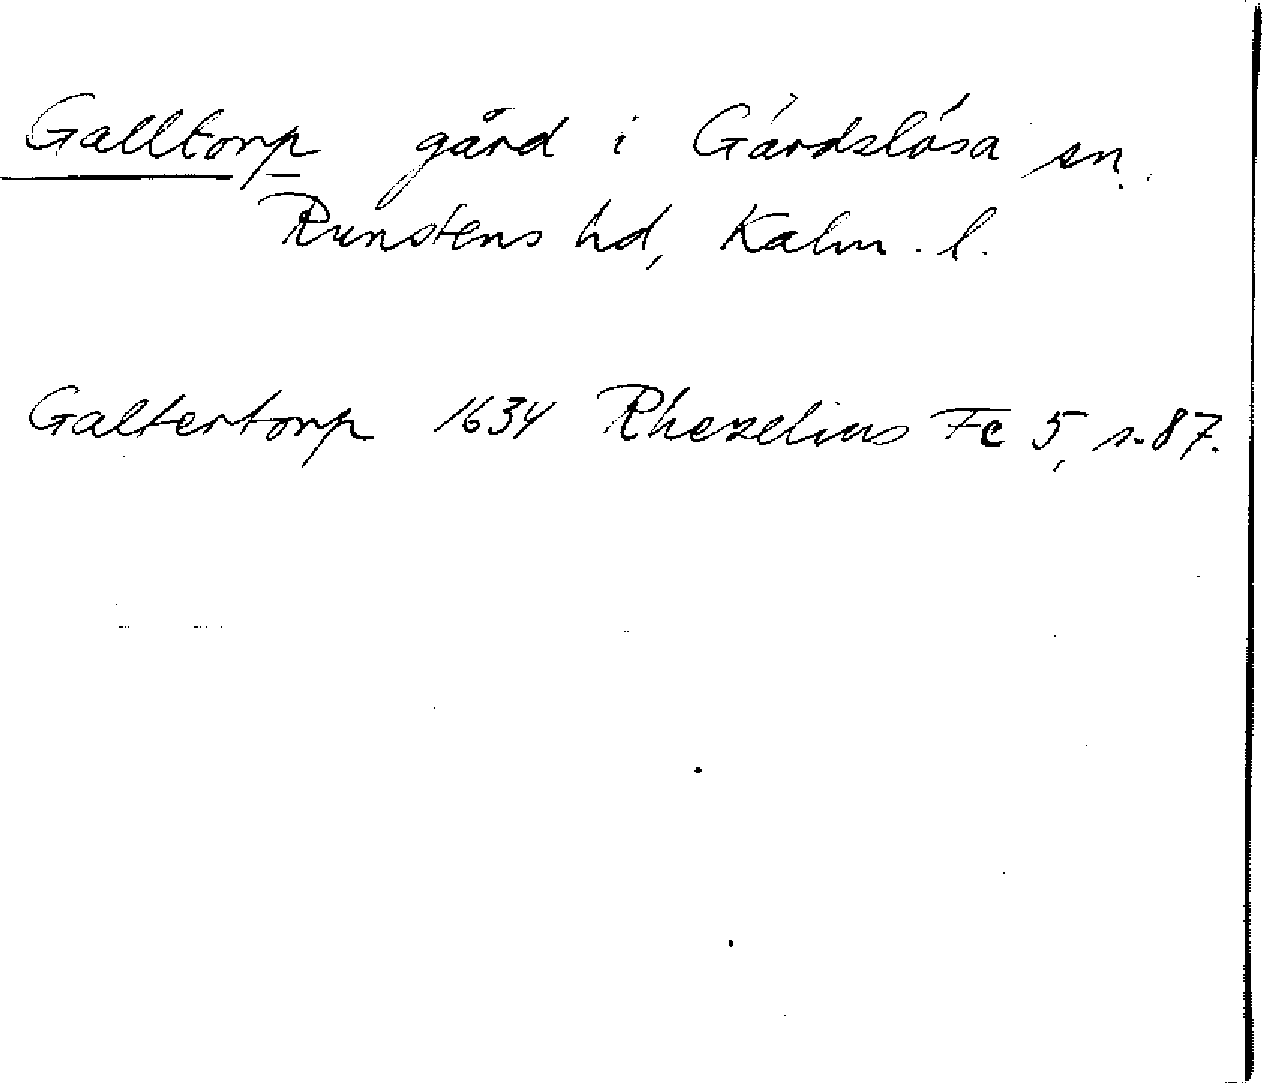 Galltorp gård i Gårdslösa sn.
Runstens hd, Kalm. l.
Galtertorp 1634 Rhezelius Fc 5, s. 87.